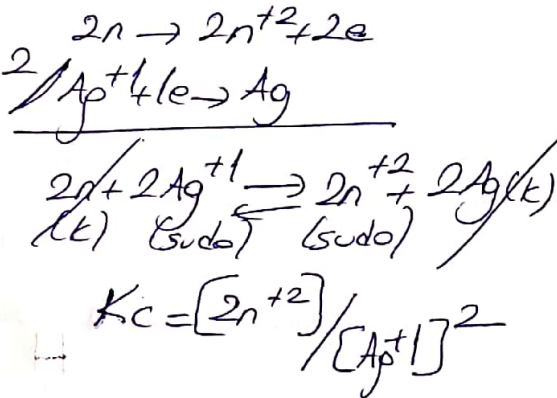 Zn → Zn+2 + 2e
2/ Ag+1 + 1e → Ag
Zn + 2Ag+1 ⇌ Zn+2 + 2Ag(k)
(k) (suda) (suda)
Kc = [Zn+2] / [Ag+1]2